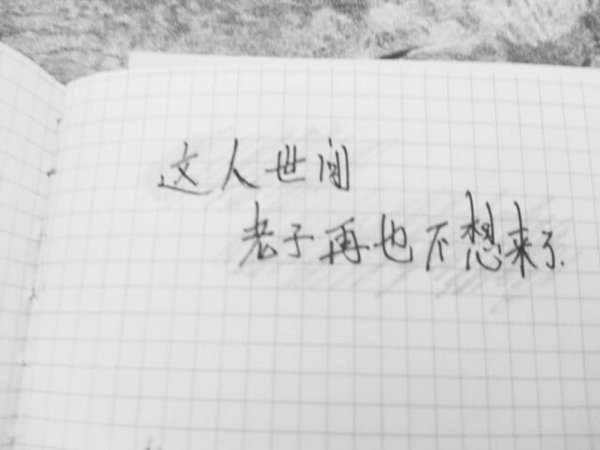 这人世间
老子再也不想来了.